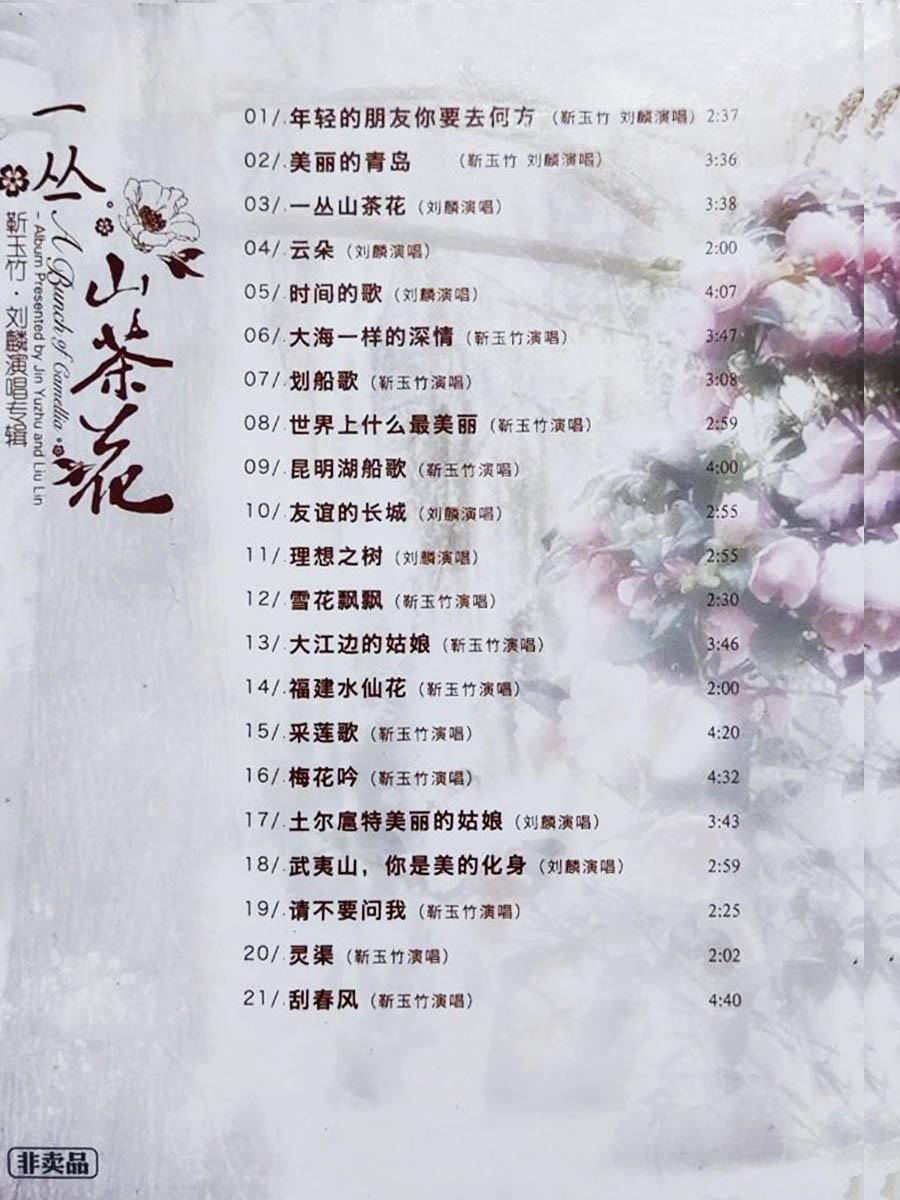 一丛山茶花
A Bunch of Camellia
- Album Presented by Jin Yuzhu and Liu Lin
靳玉竹·刘麟演唱专辑
01/. 年轻的朋友你要去何方（靳玉竹 刘麟演唱） 2:37
02/. 美丽的青岛 （靳玉竹 刘麟演唱） 3:36
03/. 一丛山茶花（刘麟演唱） 3:38
04/. 云朵（刘麟演唱） 2:00
05/. 时间的歌（刘麟演唱） 4:07
06/. 大海一样的深情（靳玉竹演唱） 3:47
07/. 划船歌（靳玉竹演唱） 3:08
08/. 世界上什么最美丽（靳玉竹演唱） 2:59
09/. 昆明湖船歌（靳玉竹演唱） 4:00
10/. 友谊的长城（刘麟演唱） 2:55
11/. 理想之树（刘麟演唱） 2:55
12/. 雪花飘飘（靳玉竹演唱） 2:30
13/. 大江边的姑娘（靳玉竹演唱） 3:46
14/. 福建水仙花（靳玉竹演唱） 2:00
15/. 采莲歌（靳玉竹演唱） 4:20
16/. 梅花吟（靳玉竹演唱） 4:32
17/. 土尔扈特美丽的姑娘（刘麟演唱） 3:43
18/. 武夷山，你是美的化身（刘麟演唱） 2:59
19/. 请不要问我（靳玉竹演唱） 2:25
20/. 灵渠（靳玉竹演唱） 2:02
21/. 刮春风（靳玉竹演唱） 4:40
非卖品